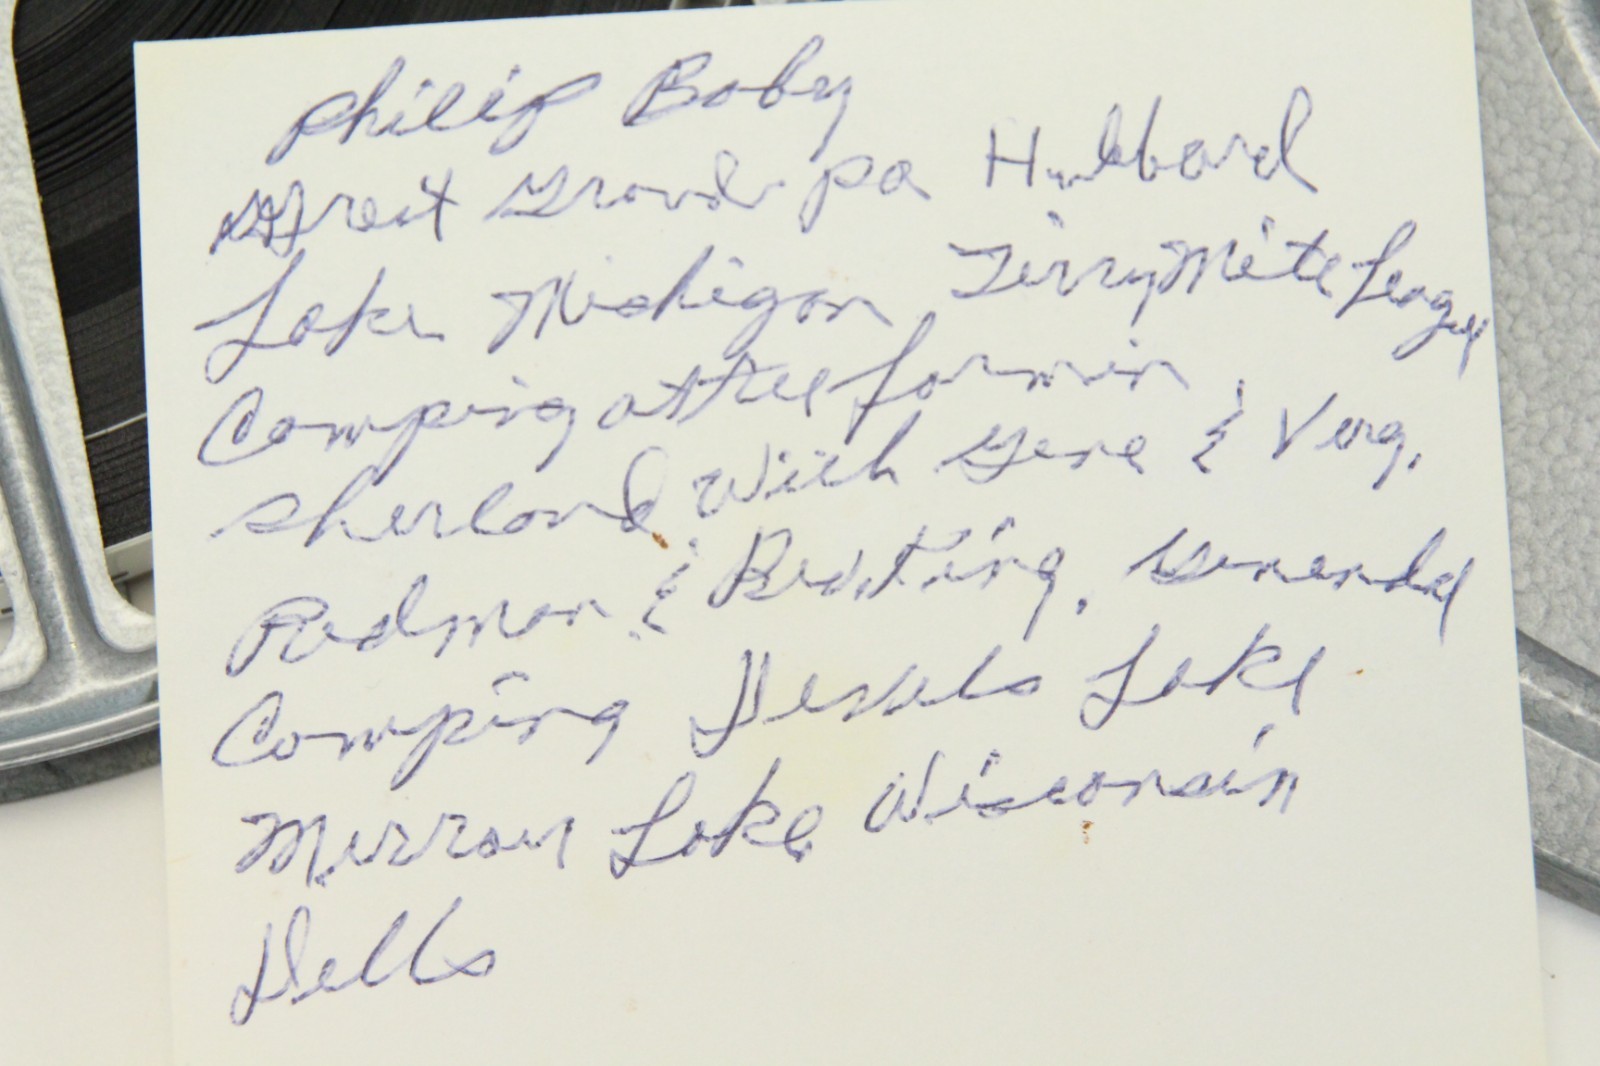 Philip Baby
Great Grand pa Hubbard
Lake Michigan Mite League
Camping at tree farm in
Sherland with Gene & Verg.
Redman & Boating,
Camping Devels Lake
Mirror Lake Wisconsin
Dells